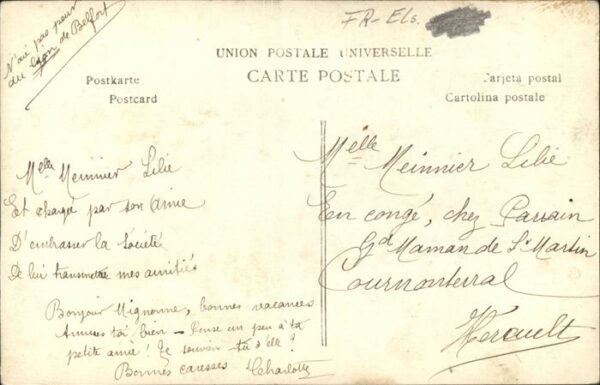 N'aie pas peur
du Lion de Belfort
FR-Els.
UNION POSTALE UNIVERSELLE
CARTE POSTALE
Postkarte
Postcard
Tarjeta postal
Cartolina postale
Melle Meinnier Lilie
Et chargé par son Amie
D'embrasser la Société
De lui transmettre mes amitiés
Bonjour Mignonne, bonnes vacances
Amuses toi bien - Pense un peu à ta
petite amie! Te souvien-tu d'elle?
Bonnes caresses Charlotte
Melle Meinnier Lilie
En congé, chez Parrain
Gd Maman de St Martin
Cournonterral
Herault